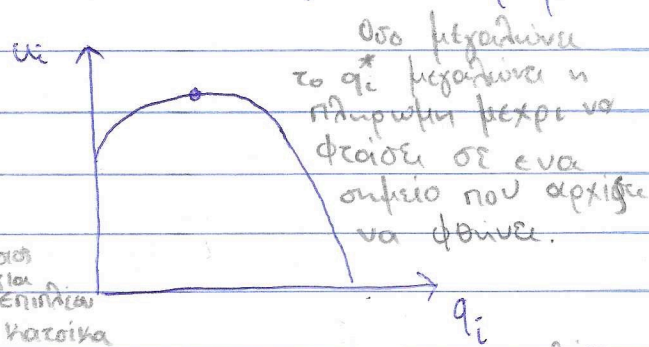 Όσο μεγαλώνει
το qᵢ* μεγαλώνει η
πληρωμή μέχρι να
φτάσει σε ενα
σημείο που αρχίζει
να φθίνει.
uᵢ
επιπλέον
κατσίκα
qᵢ